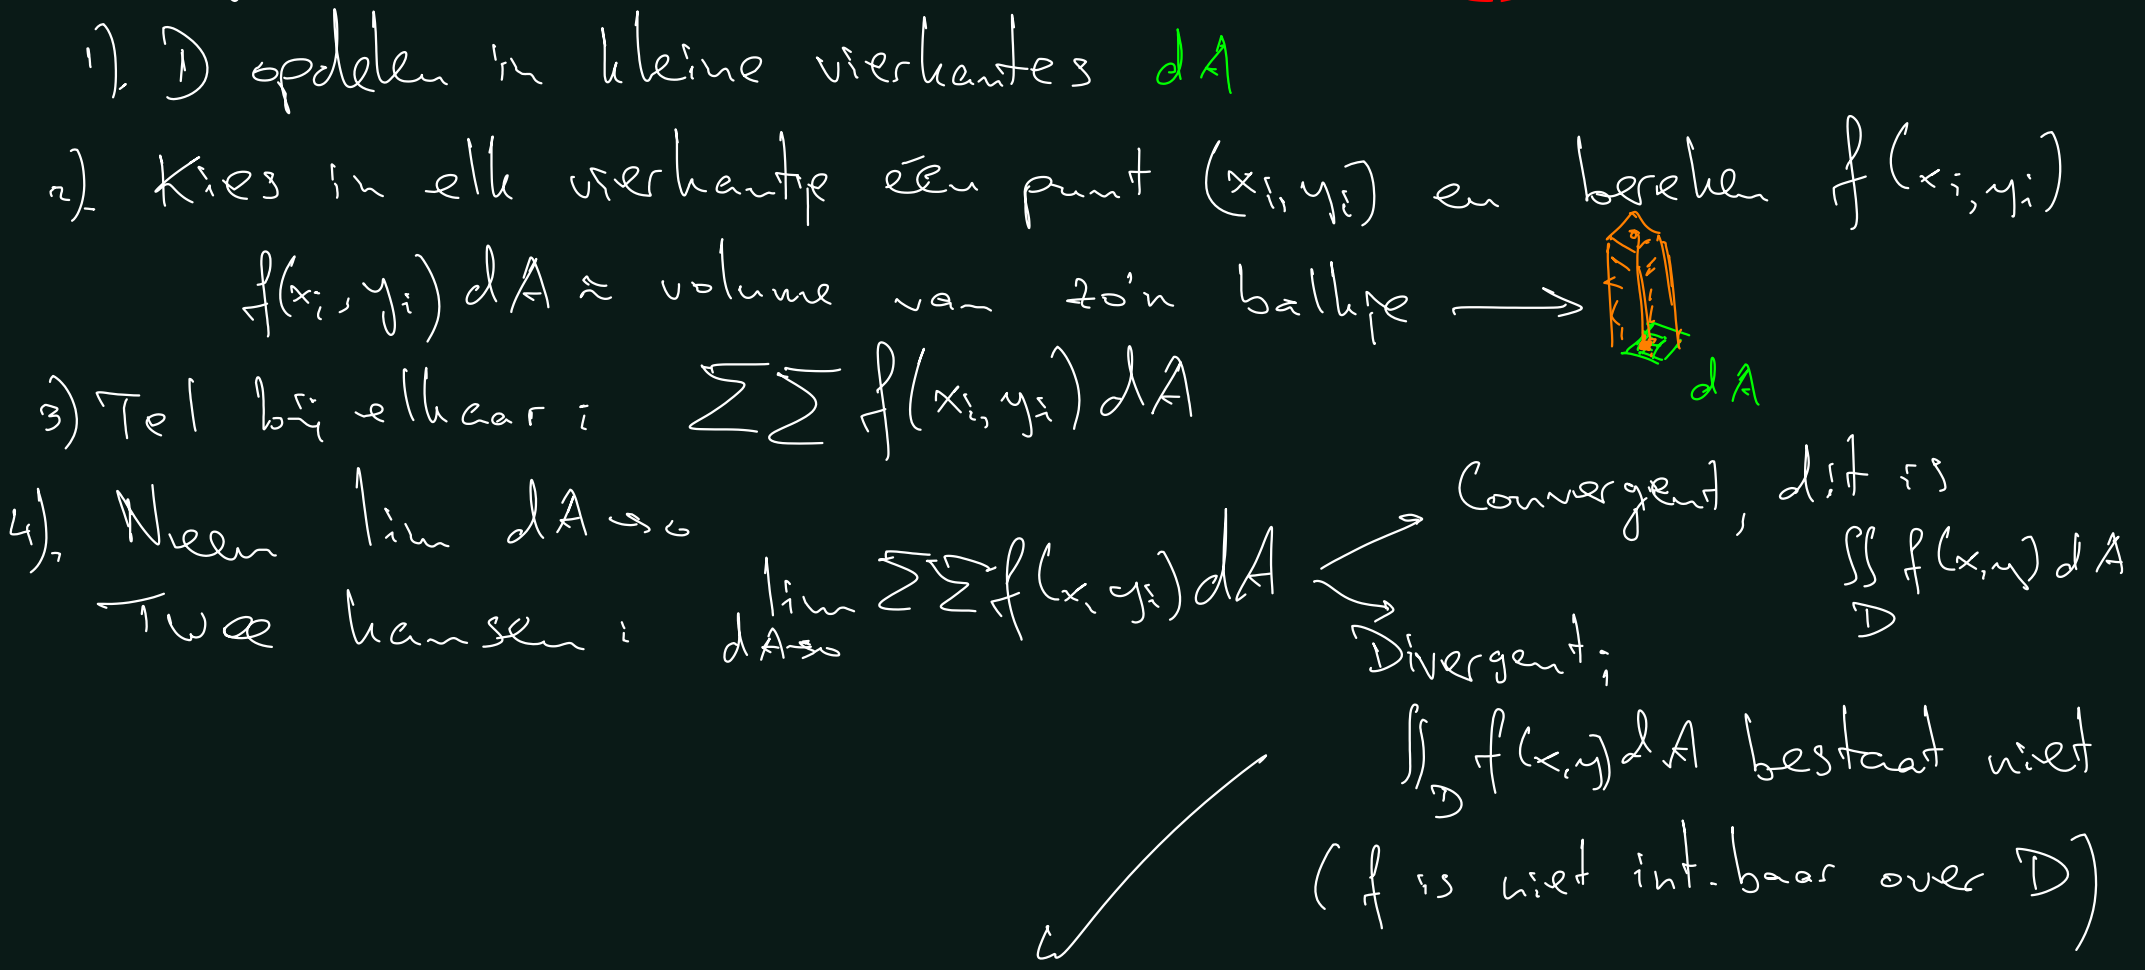 1). D opdelen in kleine vierkantes dA
2). Kies in elk vierkantje één punt (xi, yi) en bereken f(xi, yi)
f(xi, yi) dA ≈ volume van zo'n balkje →
dA
3) Tel bij elkaar : ΣΣ f(xi, yi) dA
4). Neem lim dA→0
Twee kansen : lim dA→0 ΣΣ f(xi, yi) dA
Convergent, dit is
∬D f(x,y) dA
Divergent :
∬D f(x,y) dA bestaat niet
(f is niet int.baar over D)